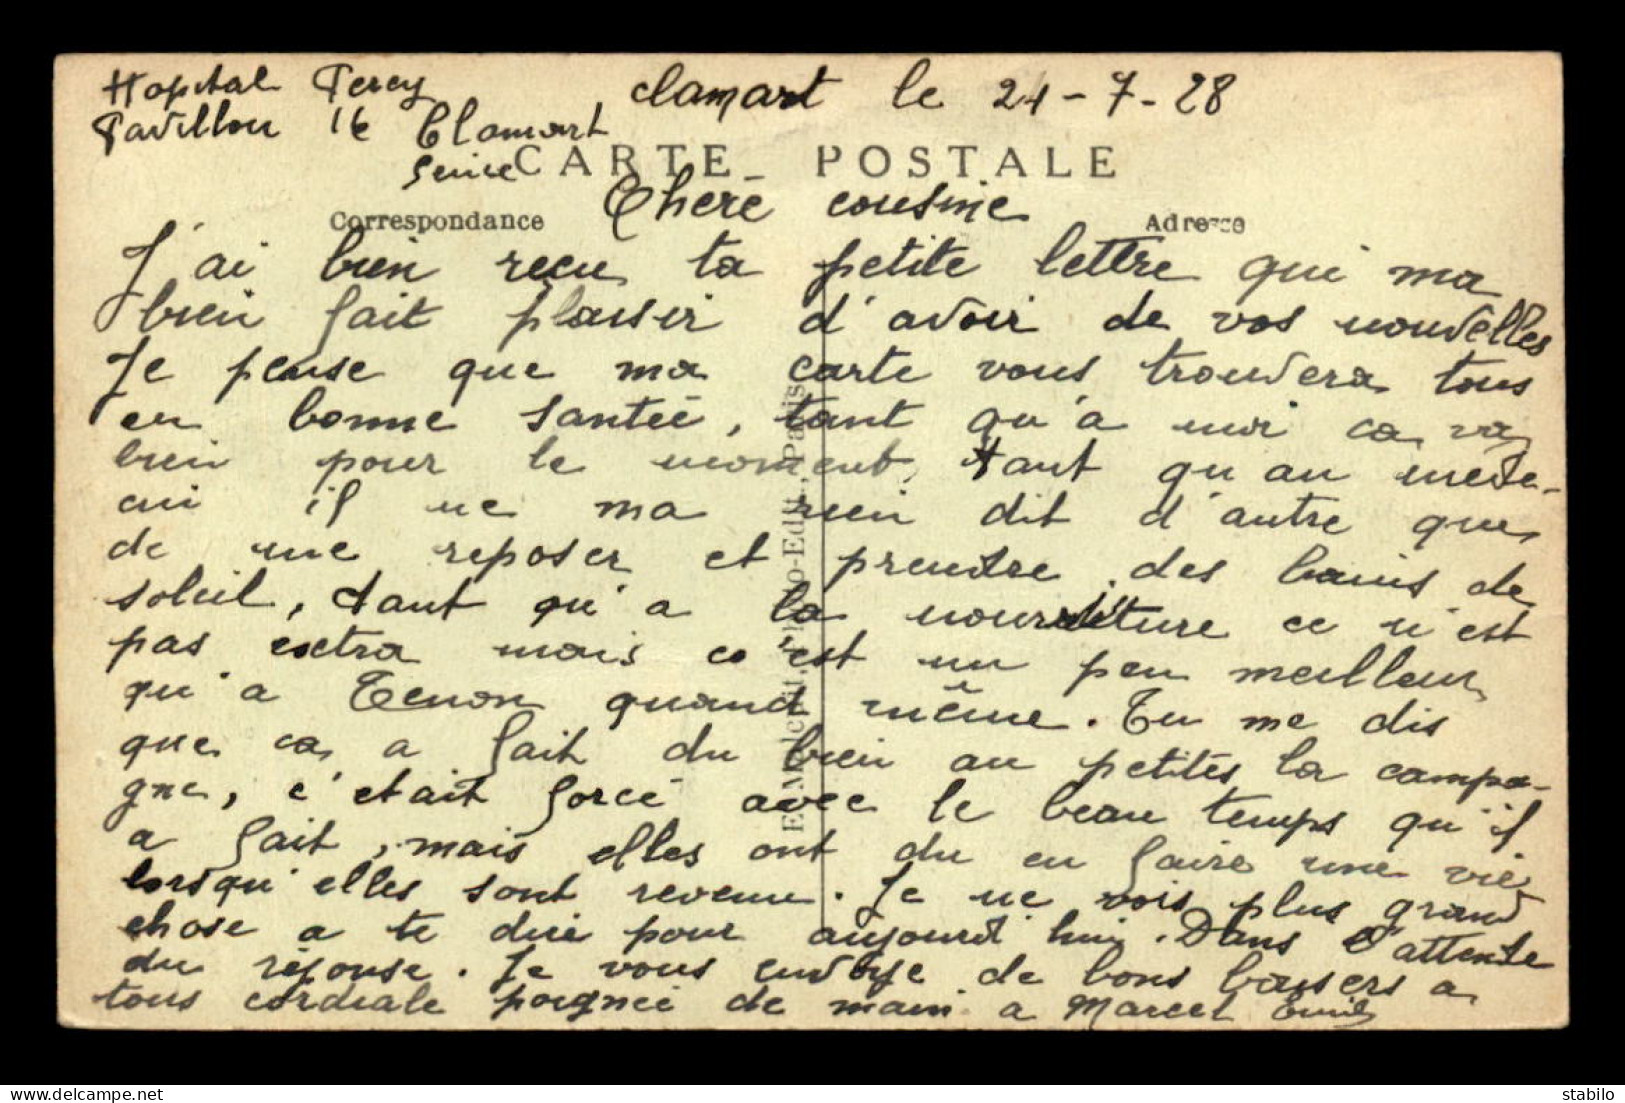 Hopital Percy
Clamart le 24-7-28
Pavillon 16 Clamart
Seine
CARTE POSTALE
Chere cousine
Correspondance
Adresse
J'ai bien recu ta petite lettre qui ma
bien fait plaisir d'avoir de vos nouvelles
Je pense que ma carte vous trouvera tous
en bonne santée, tant qu'à moi ca va
bien pour le moment, tant qu au mede-
cin il ne ma rien dit d'autre que
de me reposer et prendre des bains de
soleil, tant qu'a la nourriture ce n'est
pas extra mais c'est un peu meilleur
qu'a Tenon quand même. Tu me dis
que ca a fait du bien au petites la campa-
gne, c'etait forcé avec le beau temps qu'il
a fait, mais elles ont du en faire une vie
lorsqu'elles sont revenu. Je ne vois plus grand
chose a te dire pour aujourd'hui. Dans l'attente
du réponse. Je vous envoye de bons baisers a
tous cordiale poignée de main a Marcel Emile
Edit., Paris
stabilo